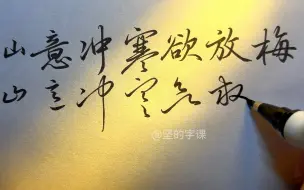 山意冲寒欲放梅
山意冲寒欲放
@坚的字课